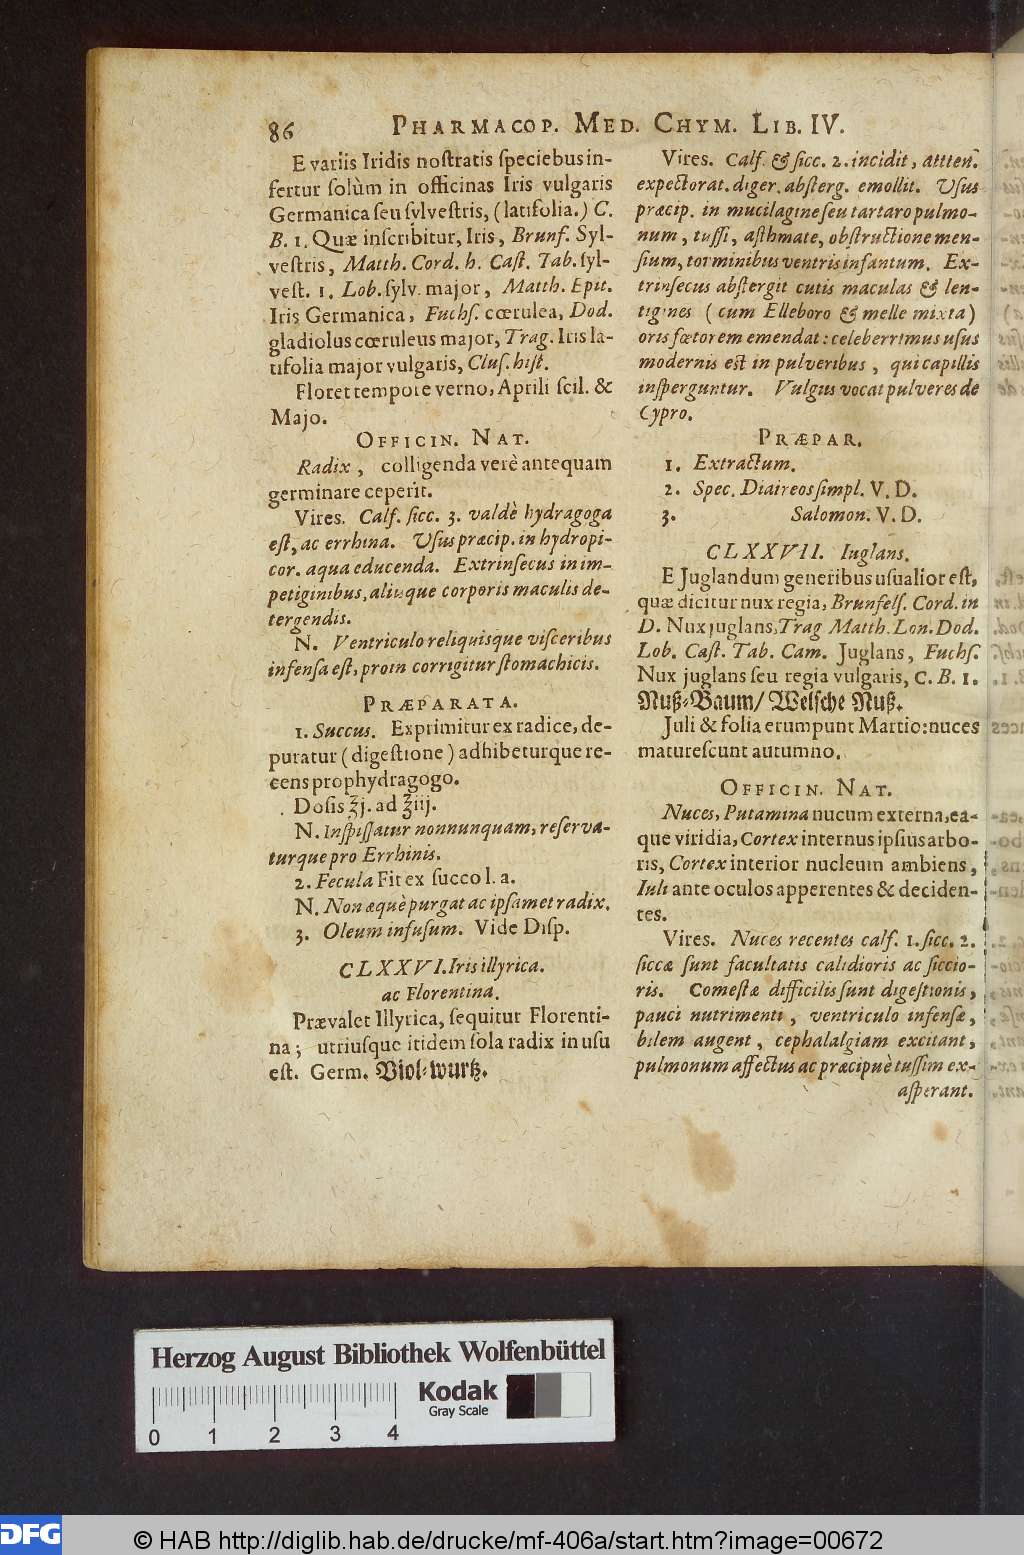 86 PHARMACOP. MED. CHYM. LIB. IV.
E variis Iridis noſtratis ſpeciebus in-
fertur ſolùm in officinas Iris vulgaris
Germanica ſeu ſylveſtris, (latifolia.) C.
B. 1. Quæ inſcribitur, Iris, Brunf. Syl-
veſtris, Matth. Cord. h. Caſt. Tab. ſyl-
veſt. 1. Lob. ſylv. major, Matth. Epit.
Iris Germanica, Fuchſ. cœrulea, Dod.
gladiolus cœruleus major, Trag. Iris la-
tifolia major vulgaris, Cluſ. hiſt.
Floret tempore verno, Aprili ſcil. &
Majo.
OFFICIN. NAT.
Radix, colligenda verè antequam
germinare ceperit.
Vires. Calf. ſicc. 3. valdè hydragoga
eſt, ac errhina. Uſus præcip. in hydropi-
cor. aqua educenda. Extrinſecus in im-
petiginibus, aliisque corporis maculis de-
tergendis.
N. Ventriculo reliquisque viſceribus
infenſa eſt, proin corrigitur ſtomachicis.
PRÆPARATA.
1. Succus. Exprimitur ex radice, de-
puratur (digeſtione) adhibeturque re-
cens prophydragogo.
Doſis ℥j. ad ℥iij.
N. Inſpiſſatur nonnunquam, reſerva-
turque pro Errhinis.
2. Fecula Fit ex ſucco l. a.
N. Non æquè purgat ac ipſamet radix.
3. Oleum infuſum. Vide Diſp.
CLXXVI. Iris illyrica.
ac Florentina.
Prævalet Illyrica, ſequitur Florenti-
na; utriuſque itidem ſola radix in uſu
eſt. Germ. Viol-wurtz.
Vires. Calf. & ſicc. 2. incidit, atten.
expectorat. diger. abſterg. emollit. Uſus
præcip. in mucilagine ſeu tartaro pulmo-
num, tuſſi, aſthmate, obſtructione men-
ſium, torminibus ventris infantum. Ex-
trinſecus abſtergit cutis maculas & len-
tigines (cum Elleboro & melle mixta)
oris fœtorem emendat: celeberrimus uſus
modernis eſt in pulveribus, qui capillis
inſperguntur. Vulgus vocat pulveres de
Cypro.
PRÆPAR.
1. Extractum.
2. Spec. Diaireos ſimpl. V. D.
3. Salomon. V. D.
CLXXVII. Iuglans.
E Juglandum generibus uſualior eſt,
quæ dicitur nux regia, Brunfelſ. Cord. in
D. Nux juglans, Trag Matth. Lon. Dod.
Lob. Caſt. Tab. Cam. Juglans, Fuchſ.
Nux juglans ſeu regia vulgaris, C. B. 1.
Nuß-Baum/ Welſche Nuß.
Juli & folia erumpunt Martio: nuces
matureſcunt autumno.
OFFICIN. NAT.
Nuces, Putamina nucum externa, ea-
que viridia, Cortex internus ipſius arbo-
ris, Cortex interior nucleum ambiens,
Iuli ante oculos apperentes & deciden-
tes.
Vires. Nuces recentes calf. 1. ſicc. 2.
ſiccæ ſunt facultatis calidioris ac ſiccio-
ris. Comeſtæ difficilis ſunt digeſtionis,
pauci nutrimenti, ventriculo infenſæ,
bilem augent, cephalalgiam excitant,
pulmonum affectus ac præcipuè tuſſim ex-
aſperant.
Herzog August Bibliothek Wolfenbüttel
Kodak
Gray Scale
0 1 2 3 4
DFG
© HAB http://diglib.hab.de/drucke/mf-406a/start.htm?image=00672